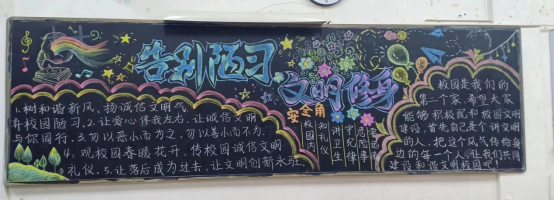 告别陋习
文明修身
1.树和谐新风,扬诚信文明气
弃校园陋习.2.让爱心伴我左右,让诚信文明
与你同行.3.勿以恶小而为之,勿以善小而不为.
4.观校园春暖花开,传校园诚信文明
礼仪.5.让落后成为过去,让文明创新永驻.
安全角
校园内
知礼仪
讲卫生
守纪律
校园是我们的
第一个家,希望大家
能够积极配和校园文明
建设,首先自己是个讲文明
的人,把这个风气传给身
边的每一个人,让我们共同
建设和谐文明校园吧!